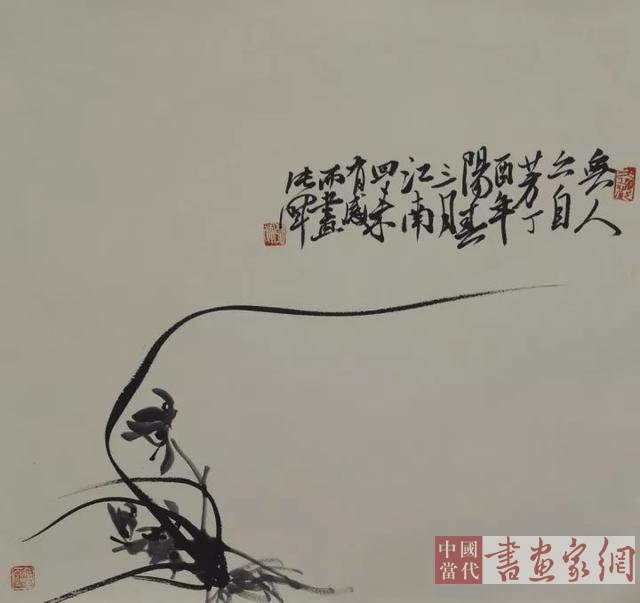 無人
亦自
芳丁
酉年
陽春
三月
江南
四
有感
而畫
中國
當代
書畫家網